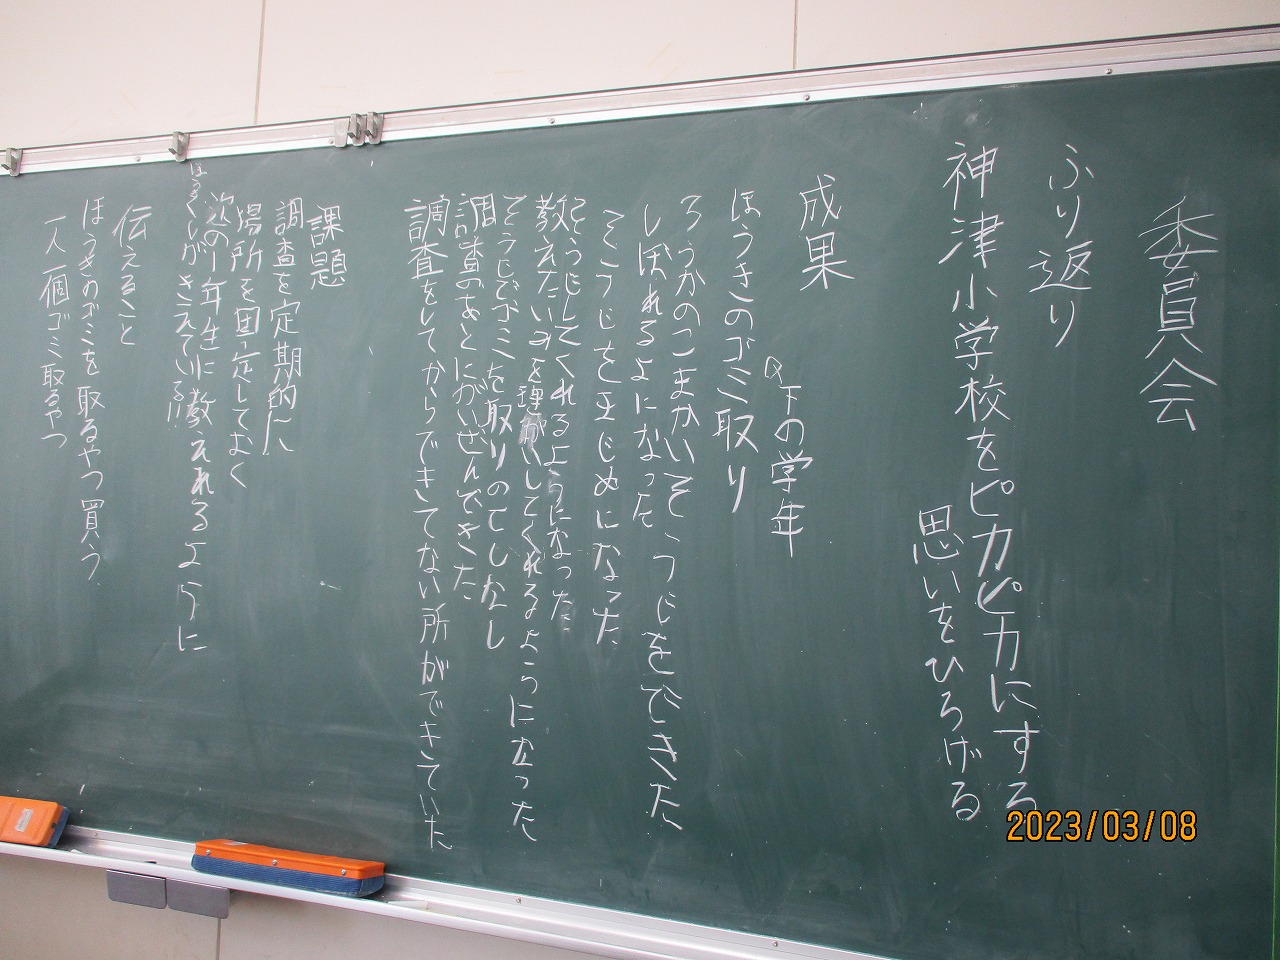 委員会
ふり返り
神津小学校をピカピカにする
思いをひろげる
成果
下の学年
ほうきのゴミ取り
ろうかのこまかいそうじをできた
しぼれるよになった
そうじをまじめになった
そうじしてくれるようになった
教えたいみを理かいしてくれるようになった
そうじでゴミを取りのこしなし
調査のあとにがいぜんできた
調査をしてからできてない所ができていた
課題
調査を定期的に
場所を固定しておく
次の1年生に教えれるように
きえている!!
伝えること
ほうきのゴミを取るやつ買う
一人一個ゴミ取るやつ
2023/03/08